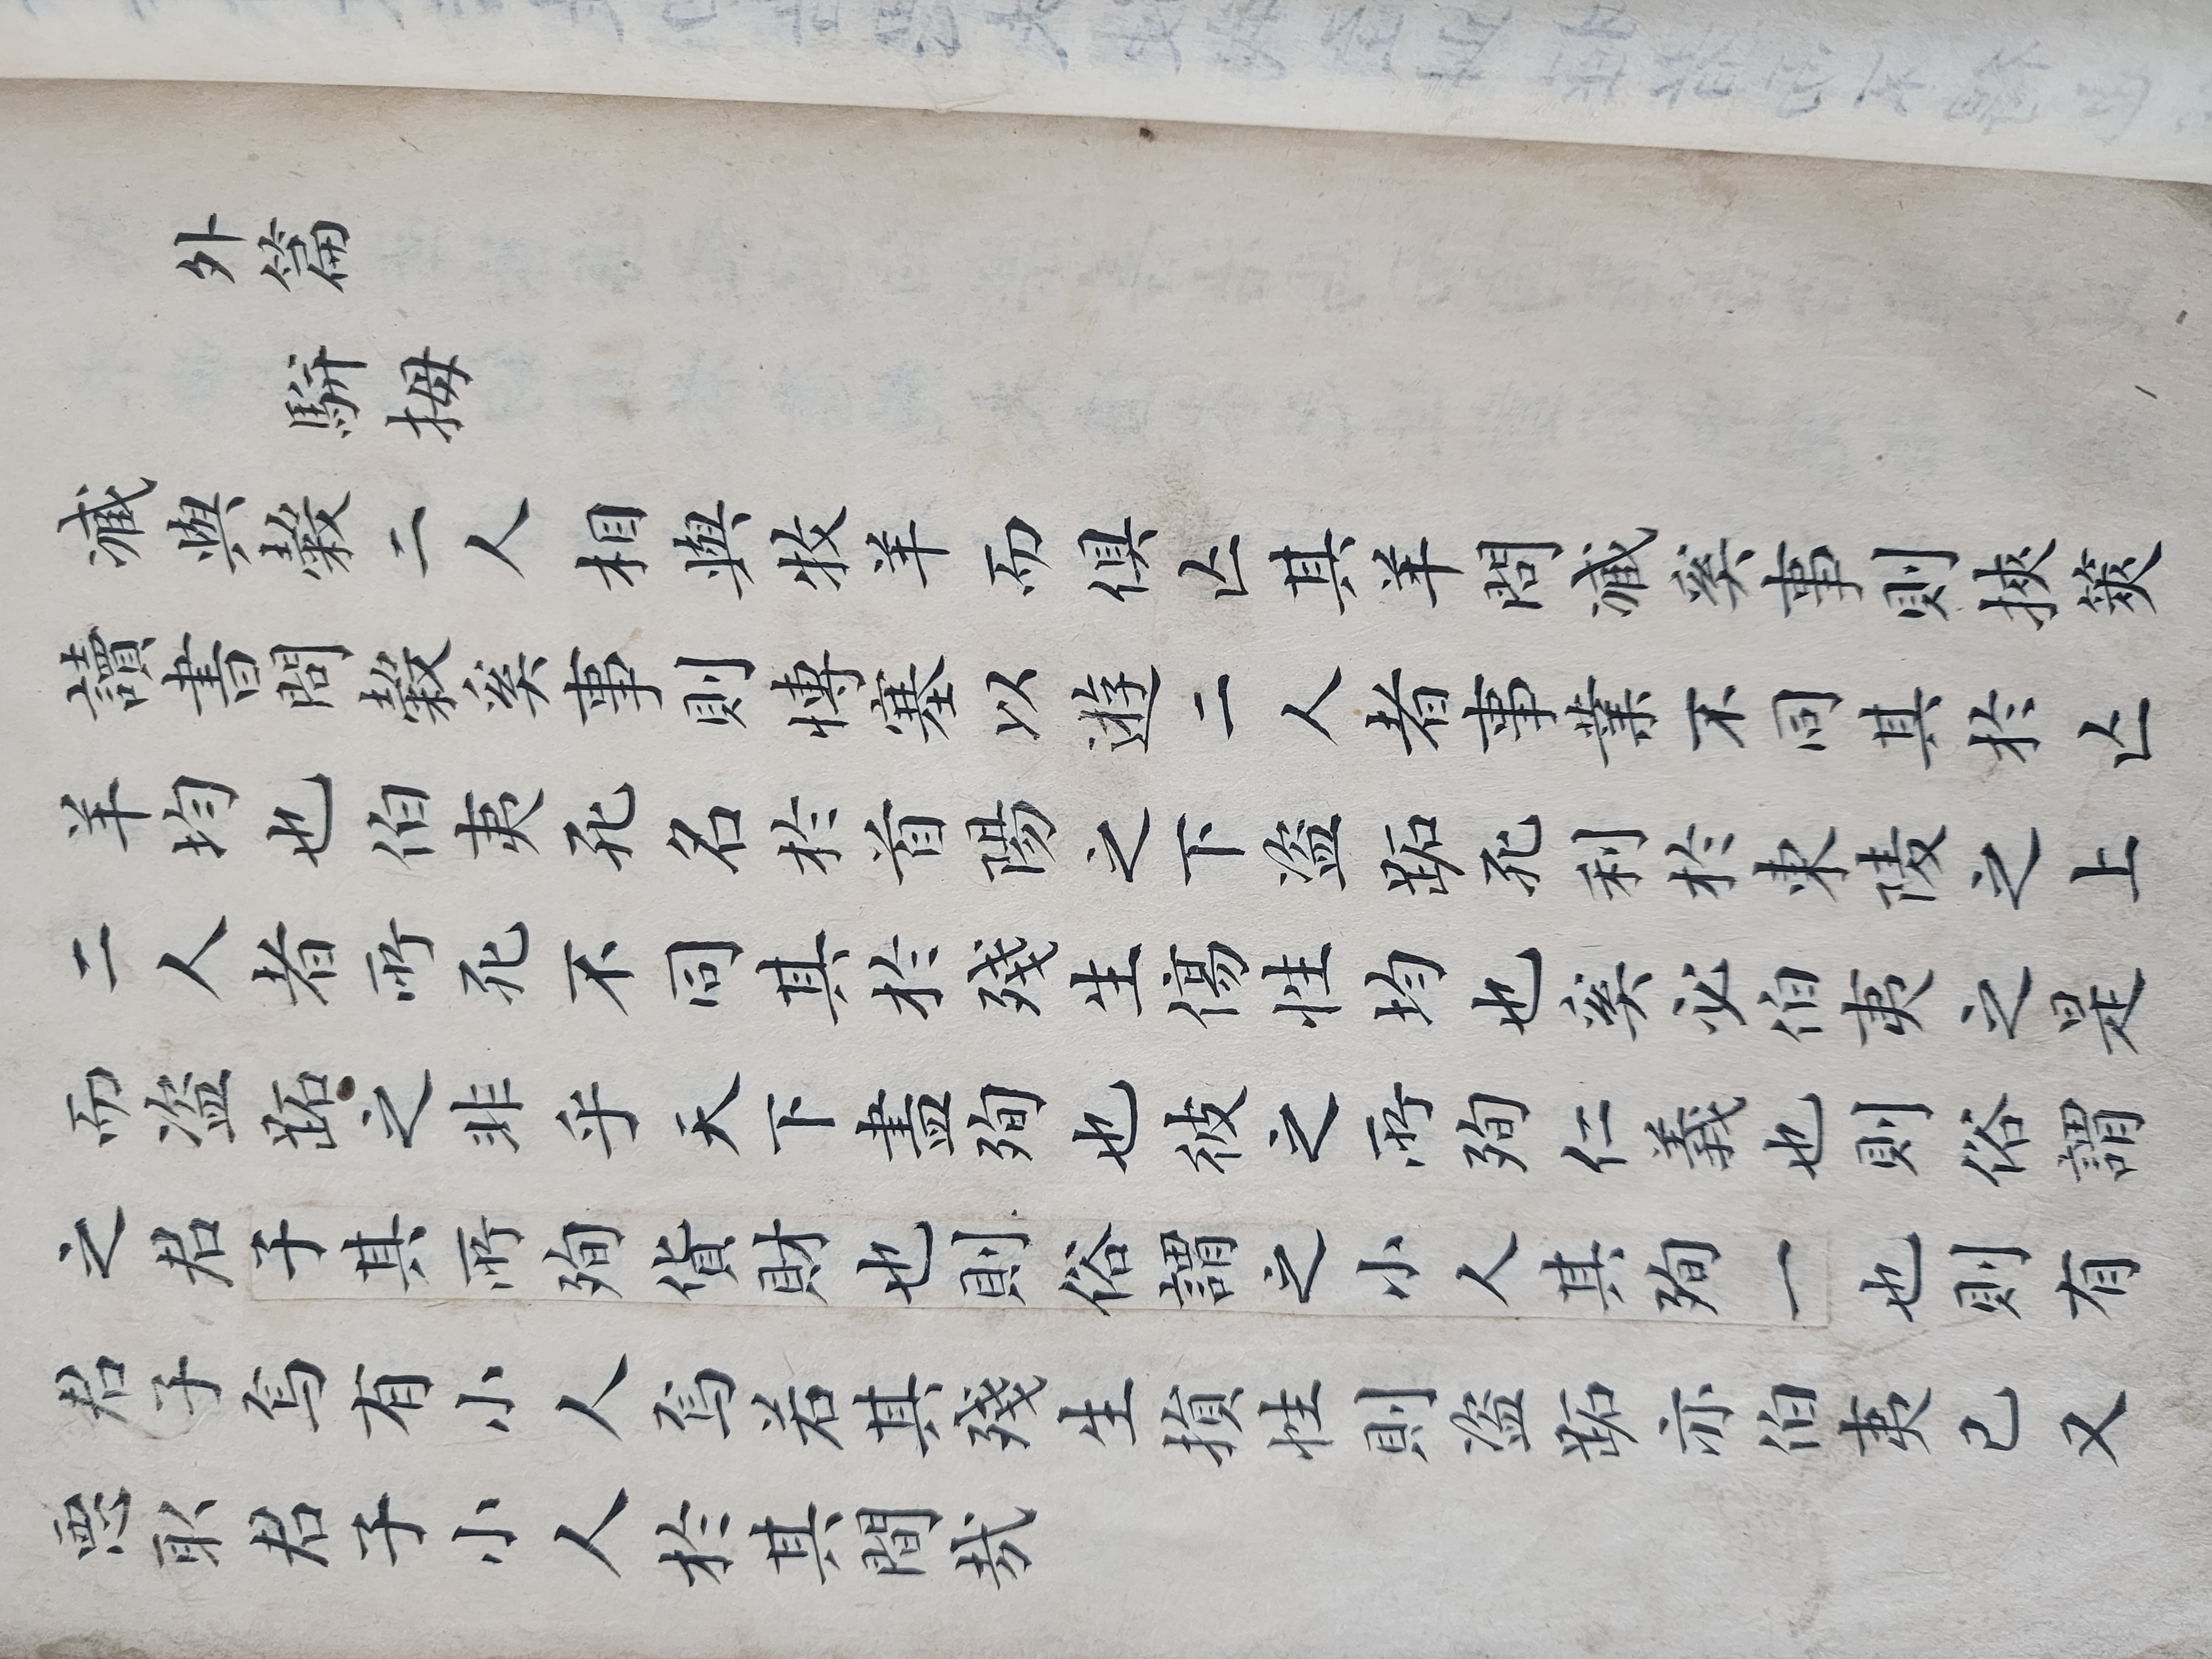 外篇
駢拇
臧與穀二人相與牧羊而俱亾其羊問臧奚事則挾筴
讀書問穀奚事則博塞以遊二人者事業不同其於亾
羊均也伯夷死名於首陽之下盜跖死利於東陵之上
二人者所死不同其於殘生傷性均也奚必伯夷之是
而盜跖之非乎天下盡殉也彼之所殉仁義也則俗謂
之君子其所殉貨財也則俗謂之小人其殉一也則有
君子焉有小人焉若其殘生損性則盜跖亦伯夷已又
惡取君子小人於其間哉